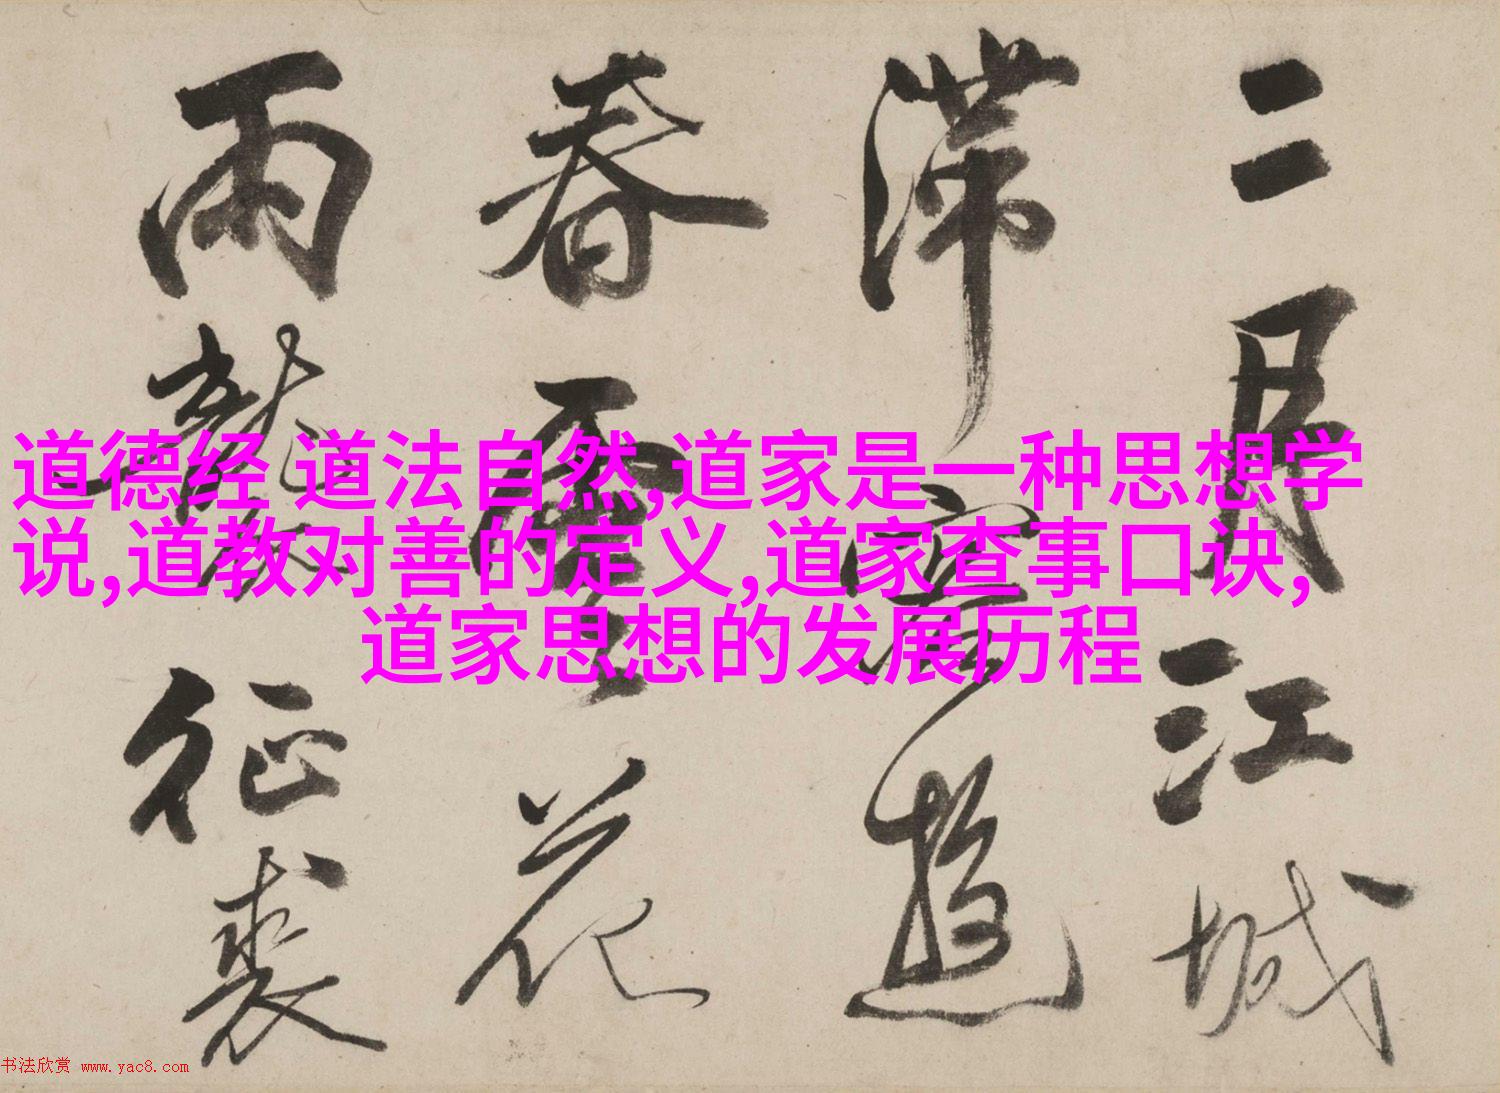 二月江城
滞客游
春雪花
雨
征裘
道德经 道法自然,道家是一种思想学
说,道教对善的定义,道家查事口诀,
道家思想的发展历程
书法欣赏 www.yac8.com